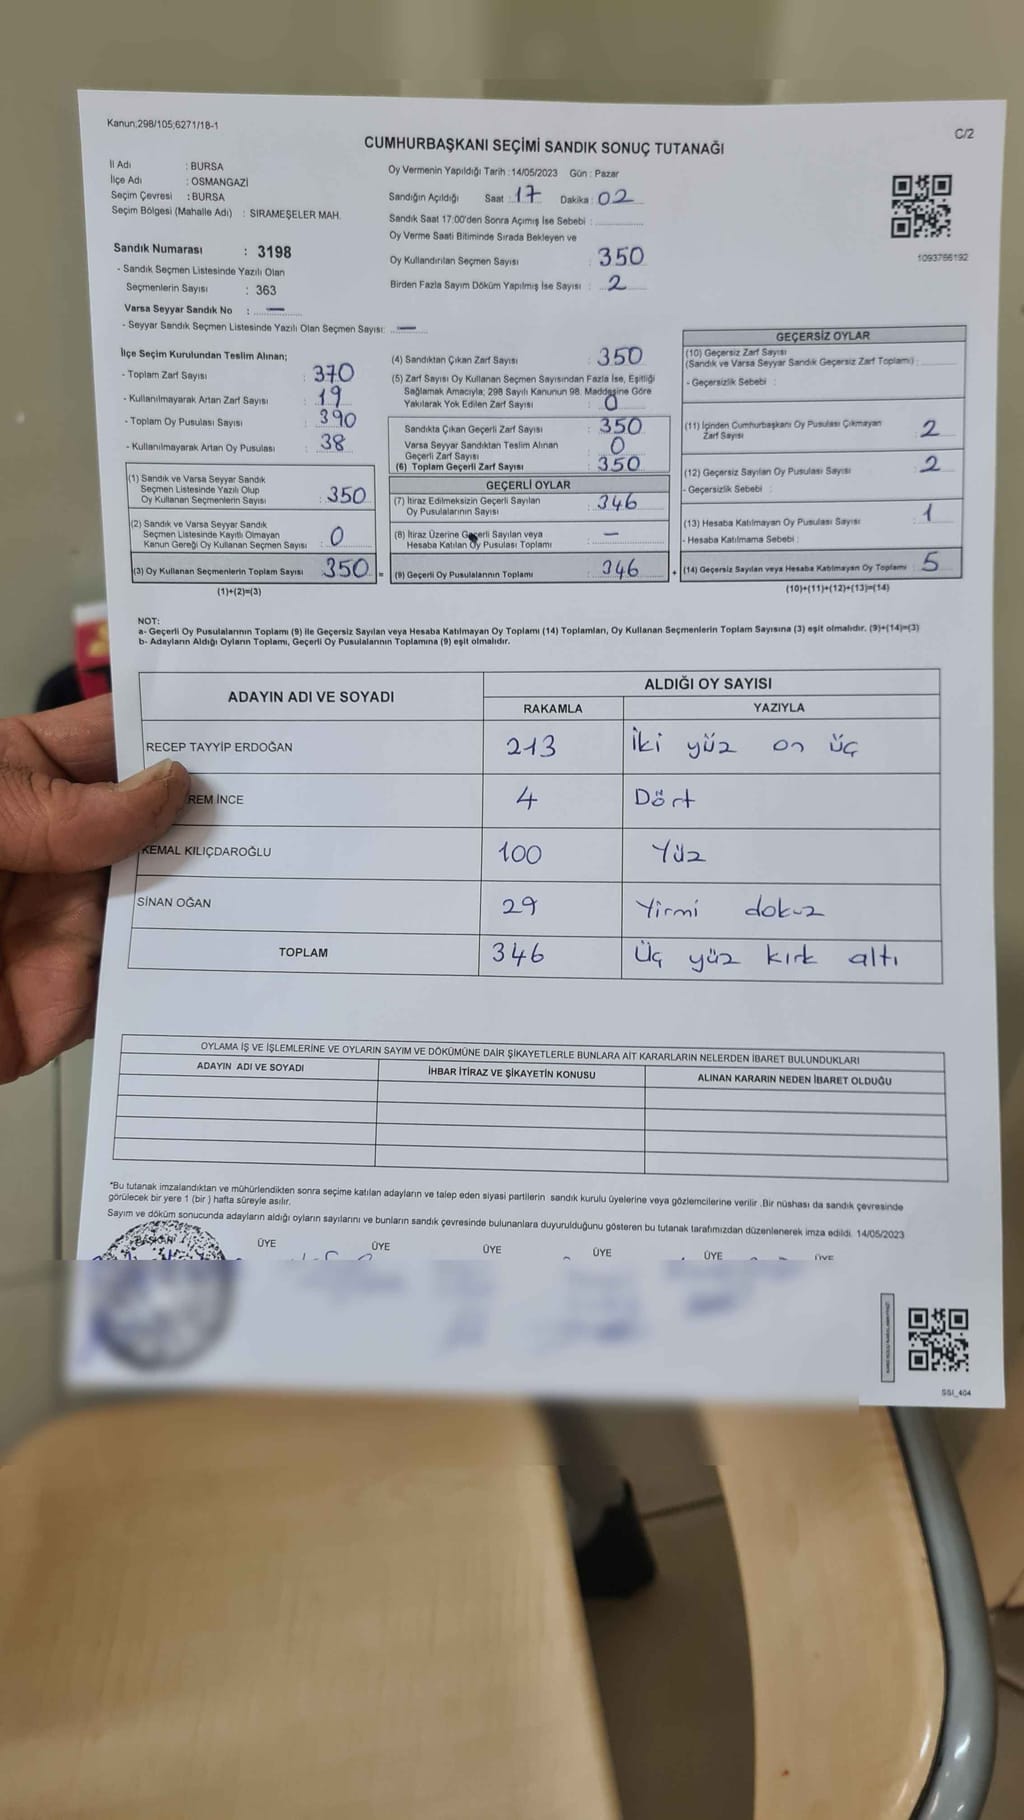 Kanun;298/105;6271/18-1
C/2
CUMHURBAŞKANI SEÇİMİ SANDIK SONUÇ TUTANAĞI
İl Adı : BURSA
İlçe Adı : OSMANGAZİ
Seçim Çevresi : BURSA
Seçim Bölgesi (Mahalle Adı) : SIRAMEŞELER MAH.
Oy Vermenin Yapıldığı Tarih : 14/05/2023 Gün : Pazar
Sandığın Açıldığı Saat : 17 Dakika : 02
Sandık Saat 17:00'den Sonra Açımış İse Sebebi :
Oy Verme Saati Bitiminde Sırada Bekleyen ve
Oy Kullandırılan Seçmen Sayısı : 350
Birden Fazla Sayım Döküm Yapılmış İse Sayısı : 2
1093766192
Sandık Numarası : 3198
- Sandık Seçmen Listesinde Yazılı Olan
Seçmenlerin Sayısı : 363
Varsa Seyyar Sandık No : —
- Seyyar Sandık Seçmen Listesinde Yazılı Olan Seçmen Sayısı: —
İlçe Seçim Kurulundan Teslim Alınan;
- Toplam Zarf Sayısı : 370
- Kullanılmayarak Artan Zarf Sayısı : 19
- Toplam Oy Pusulası Sayısı : 390
- Kullanılmayarak Artan Oy Pusulası : 38
(1) Sandık ve Varsa Seyyar Sandık
Seçmen Listesinde Yazılı Olup
Oy Kullanan Seçmenlerin Sayısı : 350
(2) Sandık ve Varsa Seyyar Sandık
Seçmen Listesinde Kayıtlı Olmayan
Kanun Gereği Oy Kullanan Seçmen Sayısı : 0
(3) Oy Kullanan Seçmenlerin Toplam Sayısı : 350 =
(1)+(2)=(3)
(4) Sandıktan Çıkan Zarf Sayısı : 350
(5) Zarf Sayısı Oy Kullanan Seçmen Sayısından Fazla İse, Eşitliği
Sağlamak Amacıyla; 298 Sayılı Kanunun 98. Maddesine Göre
Yakılarak Yok Edilen Zarf Sayısı : 0
Sandıkta Çıkan Geçerli Zarf Sayısı : 350
Varsa Seyyar Sandıktan Teslim Alınan
Geçerli Zarf Sayısı : 0
(6) Toplam Geçerli Zarf Sayısı : 350
GEÇERLİ OYLAR
(7) İtiraz Edilmeksizin Geçerli Sayılan
Oy Pusulalarının Sayısı : 346
(8) İtiraz Üzerine Geçerli Sayılan veya
Hesaba Katılan Oy Pusulası Toplamı : —
(9) Geçerli Oy Pusulalarının Toplamı : 346 +
GEÇERSİZ OYLAR
(10) Geçersiz Zarf Sayısı
(Sandık ve Varsa Seyyar Sandık Geçersiz Zarf Toplamı) :
- Geçersizlik Sebebi :
(11) İçinden Cumhurbaşkanı Oy Pusulası Çıkmayan
Zarf Sayısı : 2
(12) Geçersiz Sayılan Oy Pusulası Sayısı : 2
- Geçersizlik Sebebi :
(13) Hesaba Katılmayan Oy Pusulası Sayısı : 1
- Hesaba Katılmama Sebebi :
(14) Geçersiz Sayılan veya Hesaba Katılmayan Oy Toplamı : 5
(10)+(11)+(12)+(13)=(14)
NOT:
a- Geçerli Oy Pusulalarının Toplamı (9) ile Geçersiz Sayılan veya Hesaba Katılmayan Oy Toplamı (14) Toplamları, Oy Kullanan Seçmenlerin Toplam Sayısına (3) eşit olmalıdır. (9)+(14)=(3)
b- Adayların Aldığı Oyların Toplamı, Geçerli Oy Pusulalarının Toplamına (9) eşit olmalıdır.
ADAYIN ADI VE SOYADI
ALDIĞI OY SAYISI
RAKAMLA YAZIYLA
RECEP TAYYİP ERDOĞAN 213 İki yüz on üç
REM İNCE 4 Dört
KEMAL KILIÇDAROĞLU 100 Yüz
SİNAN OĞAN 29 Yirmi dokuz
TOPLAM 346 Üç yüz kırk altı
OYLAMA İŞ VE İŞLEMLERİNE VE OYLARIN SAYIM VE DÖKÜMÜNE DAİR ŞİKAYETLERLE BUNLARA AİT KARARLARIN NELERDEN İBARET BULUNDUKLARI
ADAYIN ADI VE SOYADI İHBAR İTİRAZ VE ŞİKAYETİN KONUSU ALINAN KARARIN NEDEN İBARET OLDUĞU
*Bu tutanak imzalandıktan ve mühürlendikten sonra seçime katılan adayların ve talep eden siyasi partilerin sandık kurulu üyelerine veya gözlemcilerine verilir .Bir nüshası da sandık çevresinde
görülecek bir yere 1 (bir ) hafta süreyle asılır.
Sayım ve döküm sonucunda adayların aldığı oyların sayılarını ve bunların sandık çevresinde bulunanlara duyurulduğunu gösteren bu tutanak tarafımızdan düzenlenerek imza edildi. 14/05/2023
BAŞKAN ÜYE ÜYE ÜYE ÜYE ÜYE ÜYE
SSI_404